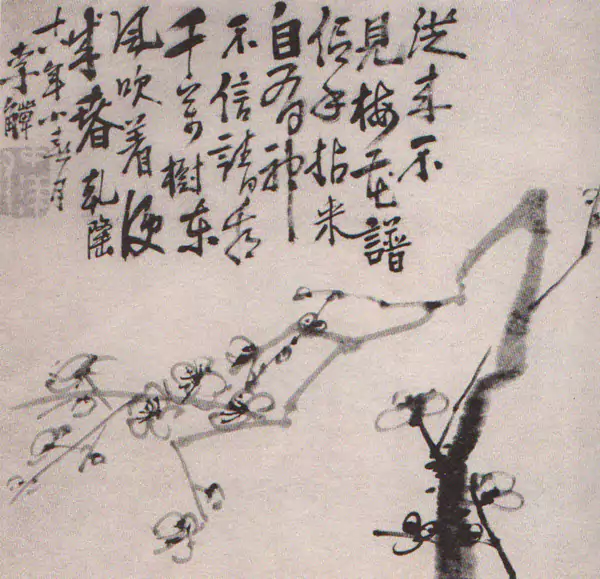 從来不
見梅花譜
信手拈来
自有神
不信請看
千萬樹東
風吹着便
成春乾隆
十八年小春月
李鱓